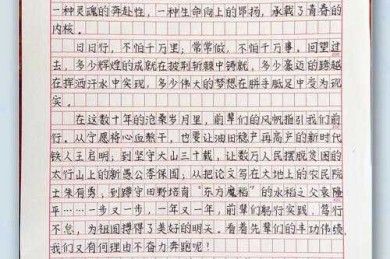 一种灵魂的奔赴性，一种生命向上的昂扬，承载了青春的
内核。
日日行，不怕千万里，常常做，不怕千万事。回望过
去，多少辉煌的成就在披荆斩棘中铸就，多少豪迈的跨越
在挥洒汗水中实现，多少伟大的梦想在胼手胝足中变为现
实。
在这数十年的沧桑岁月里，前辈们的风帆指引我们前
行。从宁愿将心血熬干，也要让油田稳产再高产的新时代
铁人王启明，到坚守大山三十载，让数万人民摆脱贫困的
太行山上的新愚公李保国，从把论文写在大地上的农民院
士朱有勇，到蹲守田野培育“东方魔稻”的水稻之父袁隆
平……一步又一步，一年又一年，前辈们躬行实践，笃行
不怠，为祖国搏得了美好的明天。看着先辈们的丰功伟绩
我们又有何理由不奋力奔跑呢！